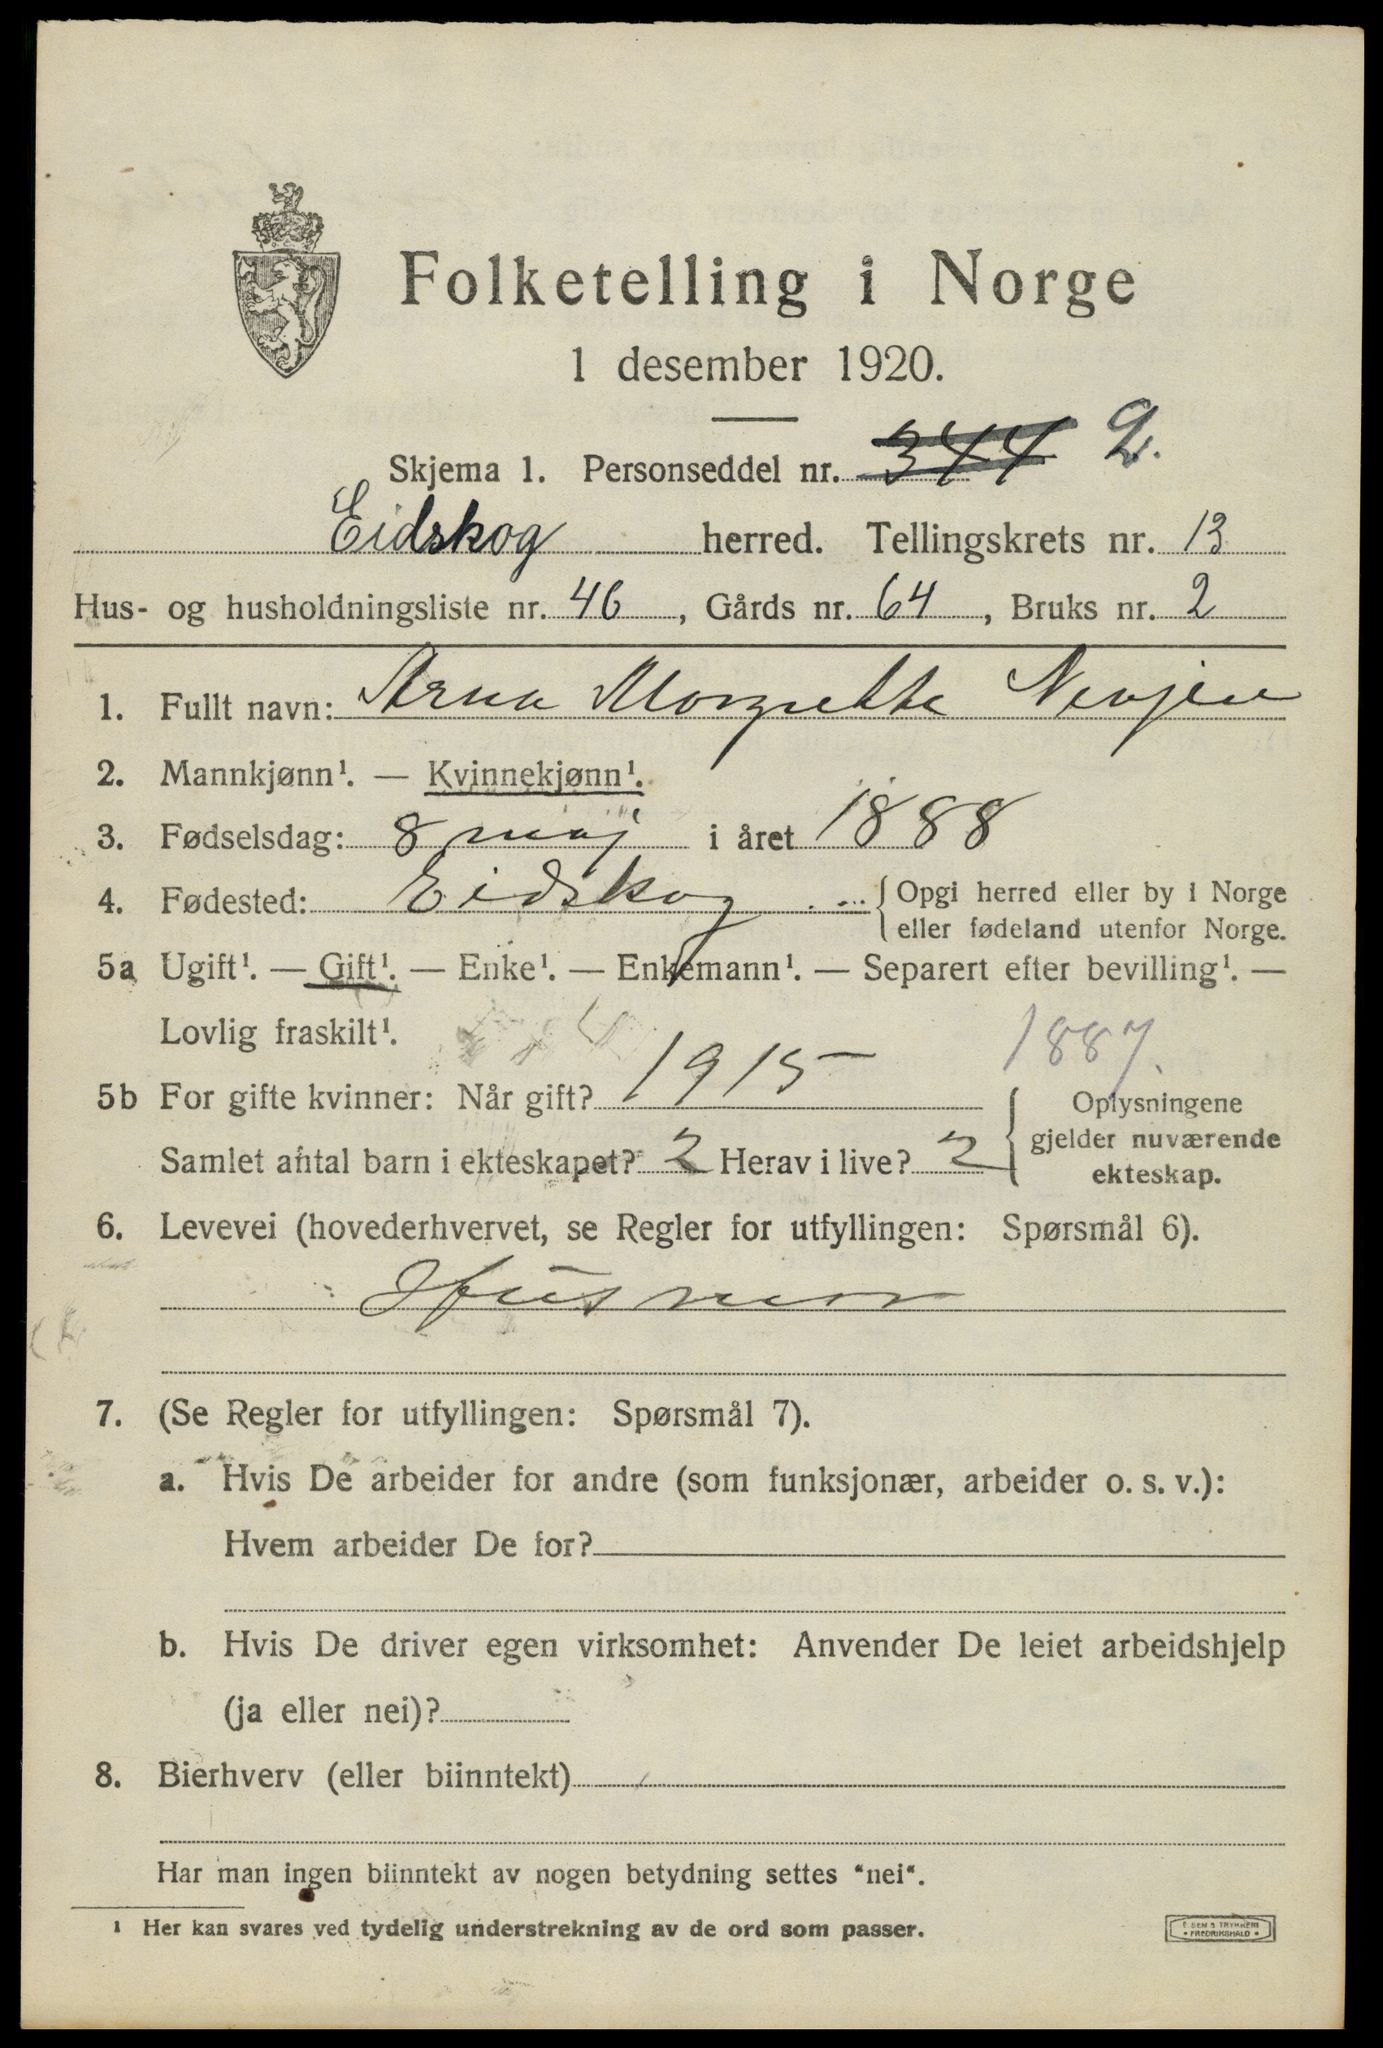 Folketelling i Norge
1 desember 1920.
Skjema 1. Personseddel nr. 344 2.
Eidskog herred. Tellingskrets nr. 13
Hus- og husholdningsliste nr. 46, Gårds nr. 64, Bruks nr. 2
1. Fullt navn: Arna Margrethe
2. Mannkjønn¹. — Kvinnekjønn¹.
3. Fødselsdag: 8 maj i året 1888
4. Fødested: Eidskog { Opgi herred eller by i Norge
eller fødeland utenfor Norge.
5a Ugift¹. — Gift¹. — Enke¹. — Enkemann¹. — Separert efter bevilling¹. —
Lovlig fraskilt¹. 1887.
5b For gifte kvinner: Når gift? 1915 { Oplysningene
gjelder nuværende
Samlet antal barn i ekteskapet? 2 Herav i live? 2
ekteskap.
6. Levevei (hovederhvervet, se Regler for utfyllingen: Spørsmål 6).
Husmor
7. (Se Regler for utfyllingen: Spørsmål 7).
a. Hvis De arbeider for andre (som funksjonær, arbeider o. s. v.):
Hvem arbeider De for?
b. Hvis De driver egen virksomhet: Anvender De leiet arbeidshjelp
(ja eller nei)?
8. Bierhverv (eller biinntekt)
Har man ingen biinntekt av nogen betydning settes "nei".
¹ Her kan svares ved tydelig understrekning av de ord som passer.
TRYKKERI
FREDRIKSHALD